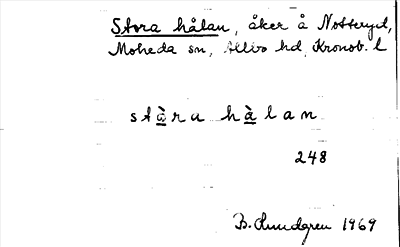 Stora hålan, åker å Notteryd,
Moheda sn, Allbo hd, Kronob. l
stàru hàlan
248
B. Lundgren 1969